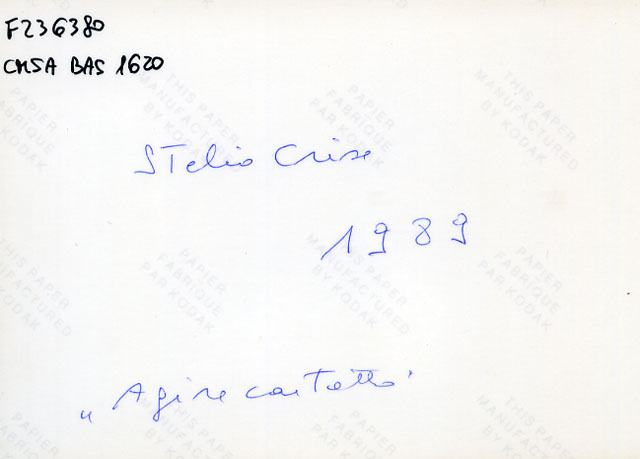 F236380
CMSA BAS 1620
STelio Crise
1989
„Agire
THIS PAPER
MANUFACTURED
BY KODAK
PAPIER
FABRIQUE
PAR KODAK